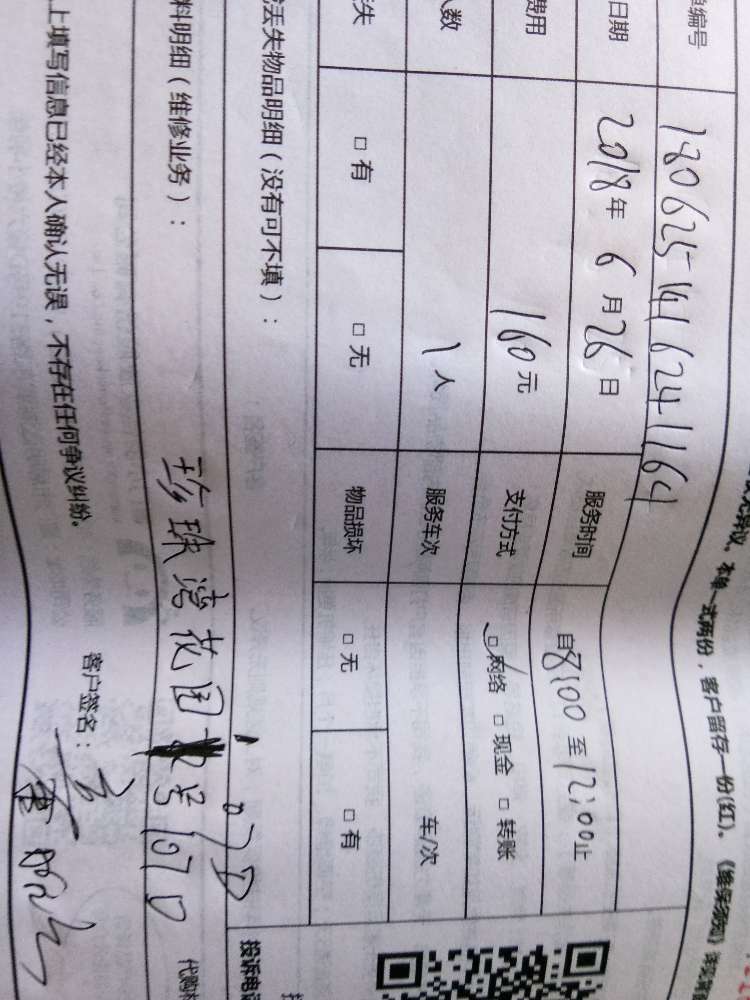 本单一式两份，客户留存一份(红)。
单编号 180625141624 1164
日期 2018年6月26日 服务时间 自8:00至12:00止
费用 160元 支付方式 □网络 □现金 □转账
人数 1人 服务车次 车/次
失 □有 □无 物品损坏 □无 □有
失物品明细（没有可不填）：
投诉电
料明细（维修业务）：
珍珠湾花园
号
代购
上填写信息已经本人确认无误，不存在任何争议纠纷。
客户签名：